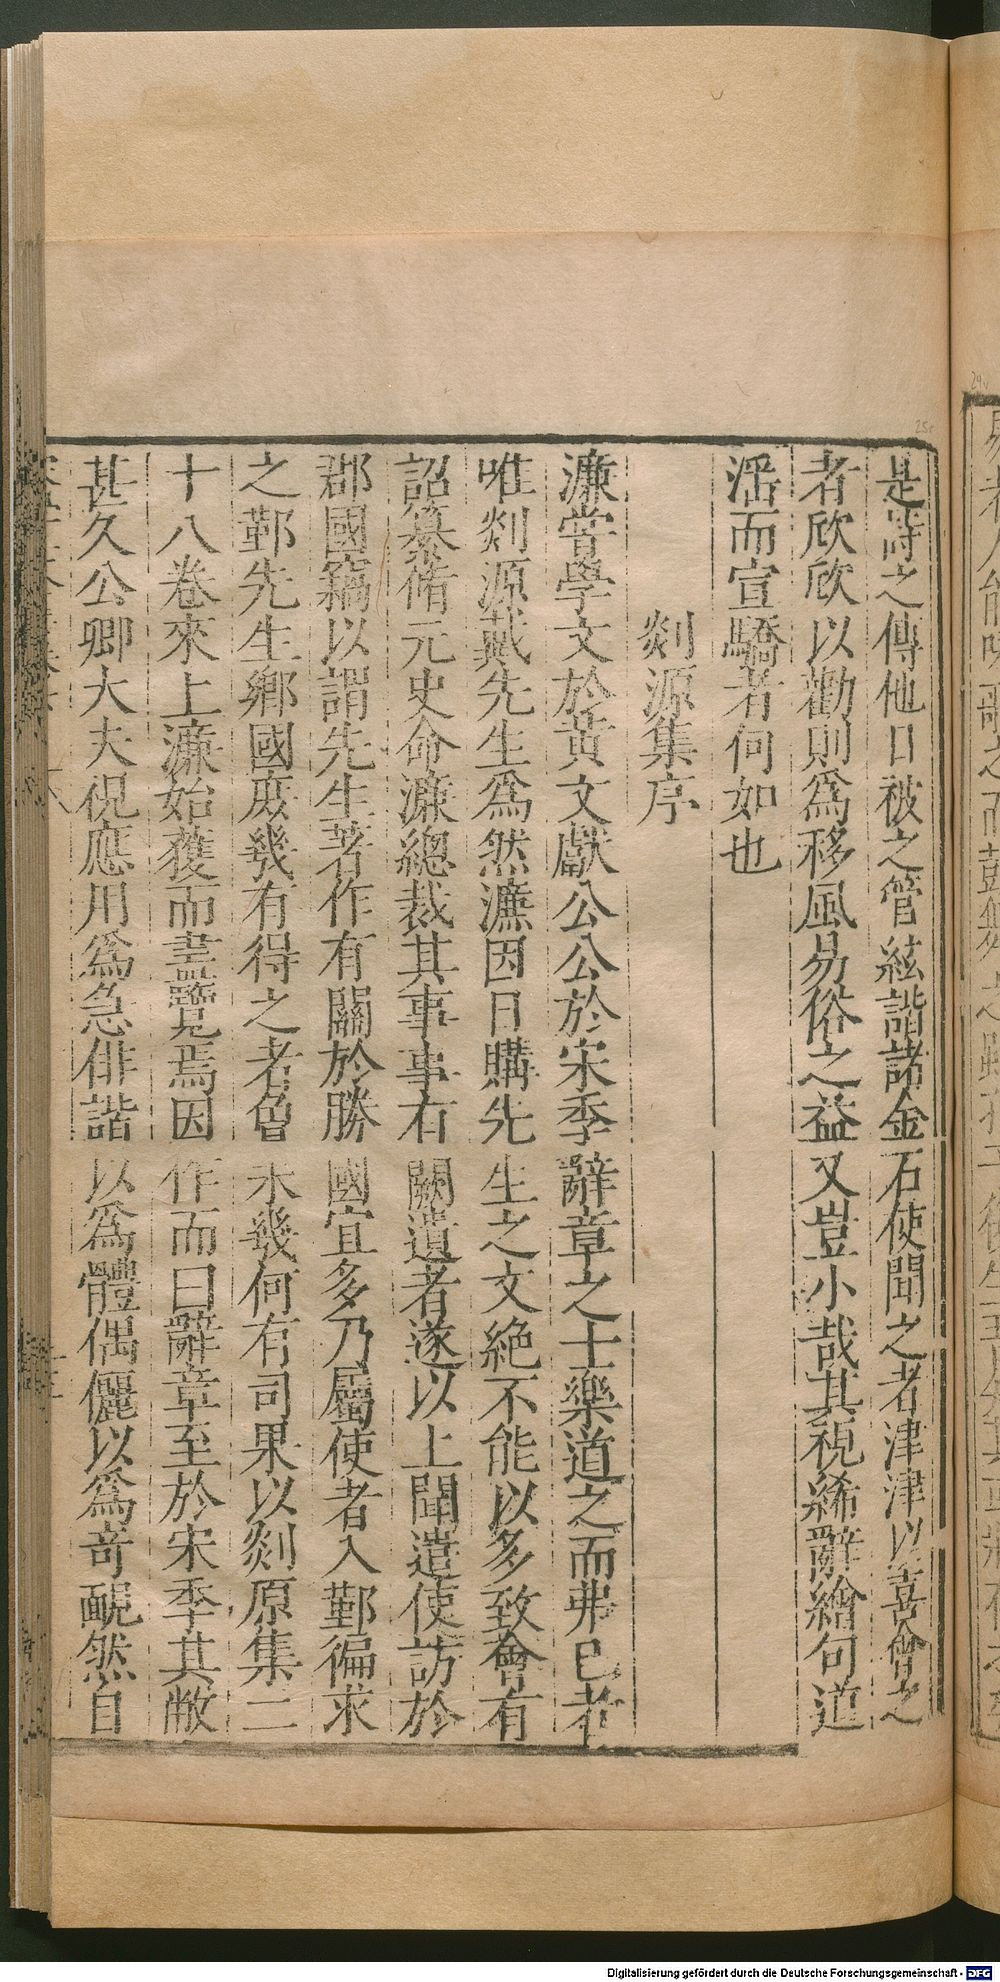 是詩之傳他日被之管絃諧諸金石使聞之者津津以喜僧之
者欣欣以勸則爲移風易俗之益又豈小哉其視絺辭繪句道
滛而宣驕者何如也
剡源集序
濂嘗學文於黃文獻公公於宋季辭章之士樂道之而弗已者
唯剡源戴先生爲然濂因日購先生之文絶不能以多致會有
詔纂脩元史命濂總裁其事事右闕遺者遂以上聞遣使訪於
郡國竊以謂先生著作有關於勝國宜多乃屬使者入鄞徧求
之鄞先生鄉國庻幾有得之者曾未幾何有司果以剡原集二
十八卷來上濂始獲而盡覽焉因作而曰辭章至於宋季其敝
甚久公卿大夫視應用爲急俳諧以爲體偶儷以爲奇靦然自
Digitalisierung gefördert durch die Deutsche Forschungsgemeinschaft - DFG